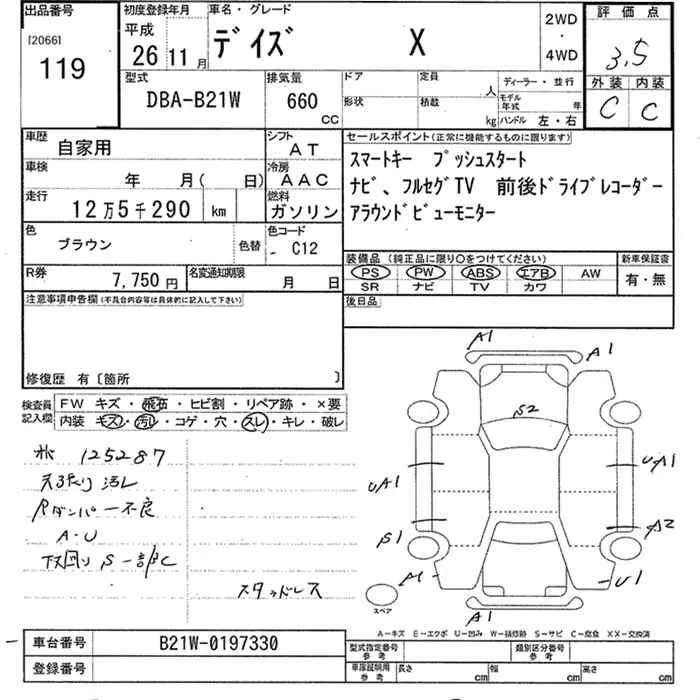 出品番号
[2066]
119
初度登録年月
平成
26 11 月
車名・グレード
デイズ X
2WD
・
4WD
評価点
3.5
外装 内装
C C
型式
DBA-B21W
排気量
660
CC
ドア
形状
定員
人
積載
kg
ディーラー・並行
モデル年式 年
ハンドル 左・右
車歴
自家用
シフト
AT
車検
年 月( 日)
冷房
AAC
走行
12万5千290 km
燃料
ガソリン
色
ブラウン
色替
色コード
C12
R券
7,750円
名変通知期限
月 日
セールスポイント(正常に機能するものに限ります)
スマートキー プッシュスタート
ナビ、フルセグTV 前後ドライブレコーダー
アラウンドビューモニター
装備品(純正品に限り○をつけてください)
新車保証書
PS PW ABS エアB AW
SR ナビ TV カワ
有・無
後日品
注意事項申告欄(不具合内容等は具体的に記入して下さい)
修復歴 有〔箇所 〕
検査員記入欄
FW キズ・飛石・ヒビ割・リペア跡・×要
内装 キズ・汚レ・コゲ・穴・スレ・キレ・破レ
125287
天張り汚レ
Rダンパー不良
A・U
下回りS一部C
スタッドレス
A1
A1
S2
UA1
UA1
S1
A2
A1
U1
A1
スペア
A-キズ E-エクボ U-凹み W-補修跡 S-サビ C-腐食 XX-交換済
車台番号
B21W-0197330
登録番号
型式指定番号
参考
類別区分番号
参考
車庫証明用
参考
長さ cm
幅 cm
高さ cm